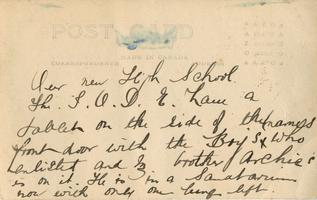 POST CARD
MADE IN CANADA
CORRESPONDENCE
Our new High School.
The I.O.D.E. have a
tablet on the side of the names
front door with the Boy's who
enlisted and brother Archie's
is on it. He is in a Sanatarium
now with only one lung left.